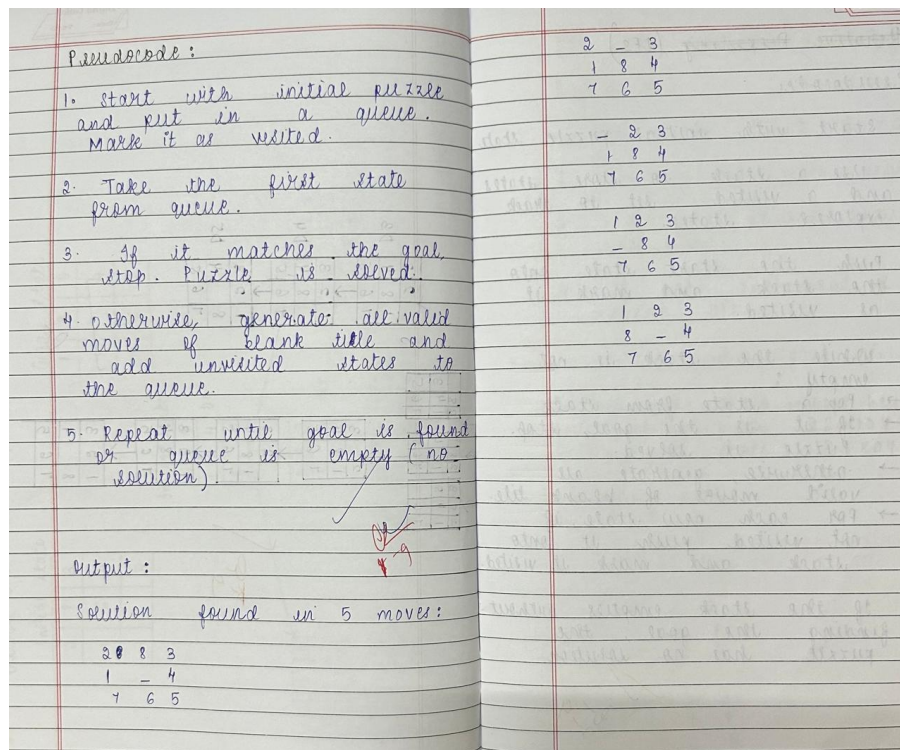 Pseudocode :
1. Start with initial puzzle
and put in a queue.
Mark it as visited.
2. Take the first state
from queue.
3. If it matches the goal,
stop. Puzzle is solved.
4. otherwise, generate all valid
moves of blank title and
add unvisited states to
the queue.
5. Repeat until goal is found
or queue is empty (no
solution).
Output :
Solution found in 5 moves:
2 8 3
1 _ 4
7 6 5
2 _ 3
1 8 4
7 6 5
_ 2 3
1 8 4
7 6 5
1 2 3
_ 8 4
7 6 5
1 2 3
8 _ 4
7 6 5